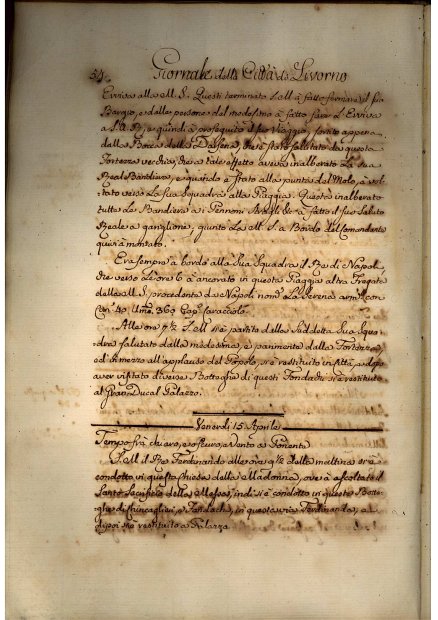 54. Giornale della Città di Livorno
Evviva alla M. S. Questi terminato S. M. à fatto fermare il suo
Bargio, e dalle persone del medesimo à fatto fare l'Evviva
a S. A. R. e quindi à proseguito il suo Viaggio, fuori appena
dalla Bocca della Darsena, ove è stato salutato da questa
Fortezza vecchia, che a tale effetto aveva inalberato la sua
Reale Bandiera, e quando è stato alla punta del Molo, à vol-
tato verso la sua Squadra alla Piaggia. Questa inalberato
tutte le Bandiere a i Pennoni à fatto il suo Saluto
Reale a ganglione, giunto la M. S. a Bordo del Comandante
qui à montato.
Era sempre a bordo alla Sua Squadra il Re di Napoli,
che verso le ore 6 à ancorato in questa Piaggia altra Fregata
della M. S. procedente da Napoli nom.ª La Serena arm.ª con
Can. 40 Uom. 369 Cap. Caracciolo.
Alle ore 7½ S. M. si è partito della Suddetta Sua Squa-
dra salutato dalla medesima, e parimente dalla Fortezza,
ed in mezzo all'applauso del Popolo, si è restituito in Città, e dopo
aver visitato diverse Botteghe di questi Fondachi si è restituito
al Gran Ducal Palazzo.
Venerdì 15 Aprile
Tempo frà chiaro, e oscuro, e Vento a Ponente
S. M. il Re Ferdinando alle ore 9½ della mattina si è
condotto in questa Chiesa della Madonna, ove à ascoltato il
Santo Sacrifizio della Messa, indi si è condotto in queste Botte-
ghe di Chincaglieri, e Fondachi, in questa via Ferdinanda, e
di poi si è restituito a Palazzo.